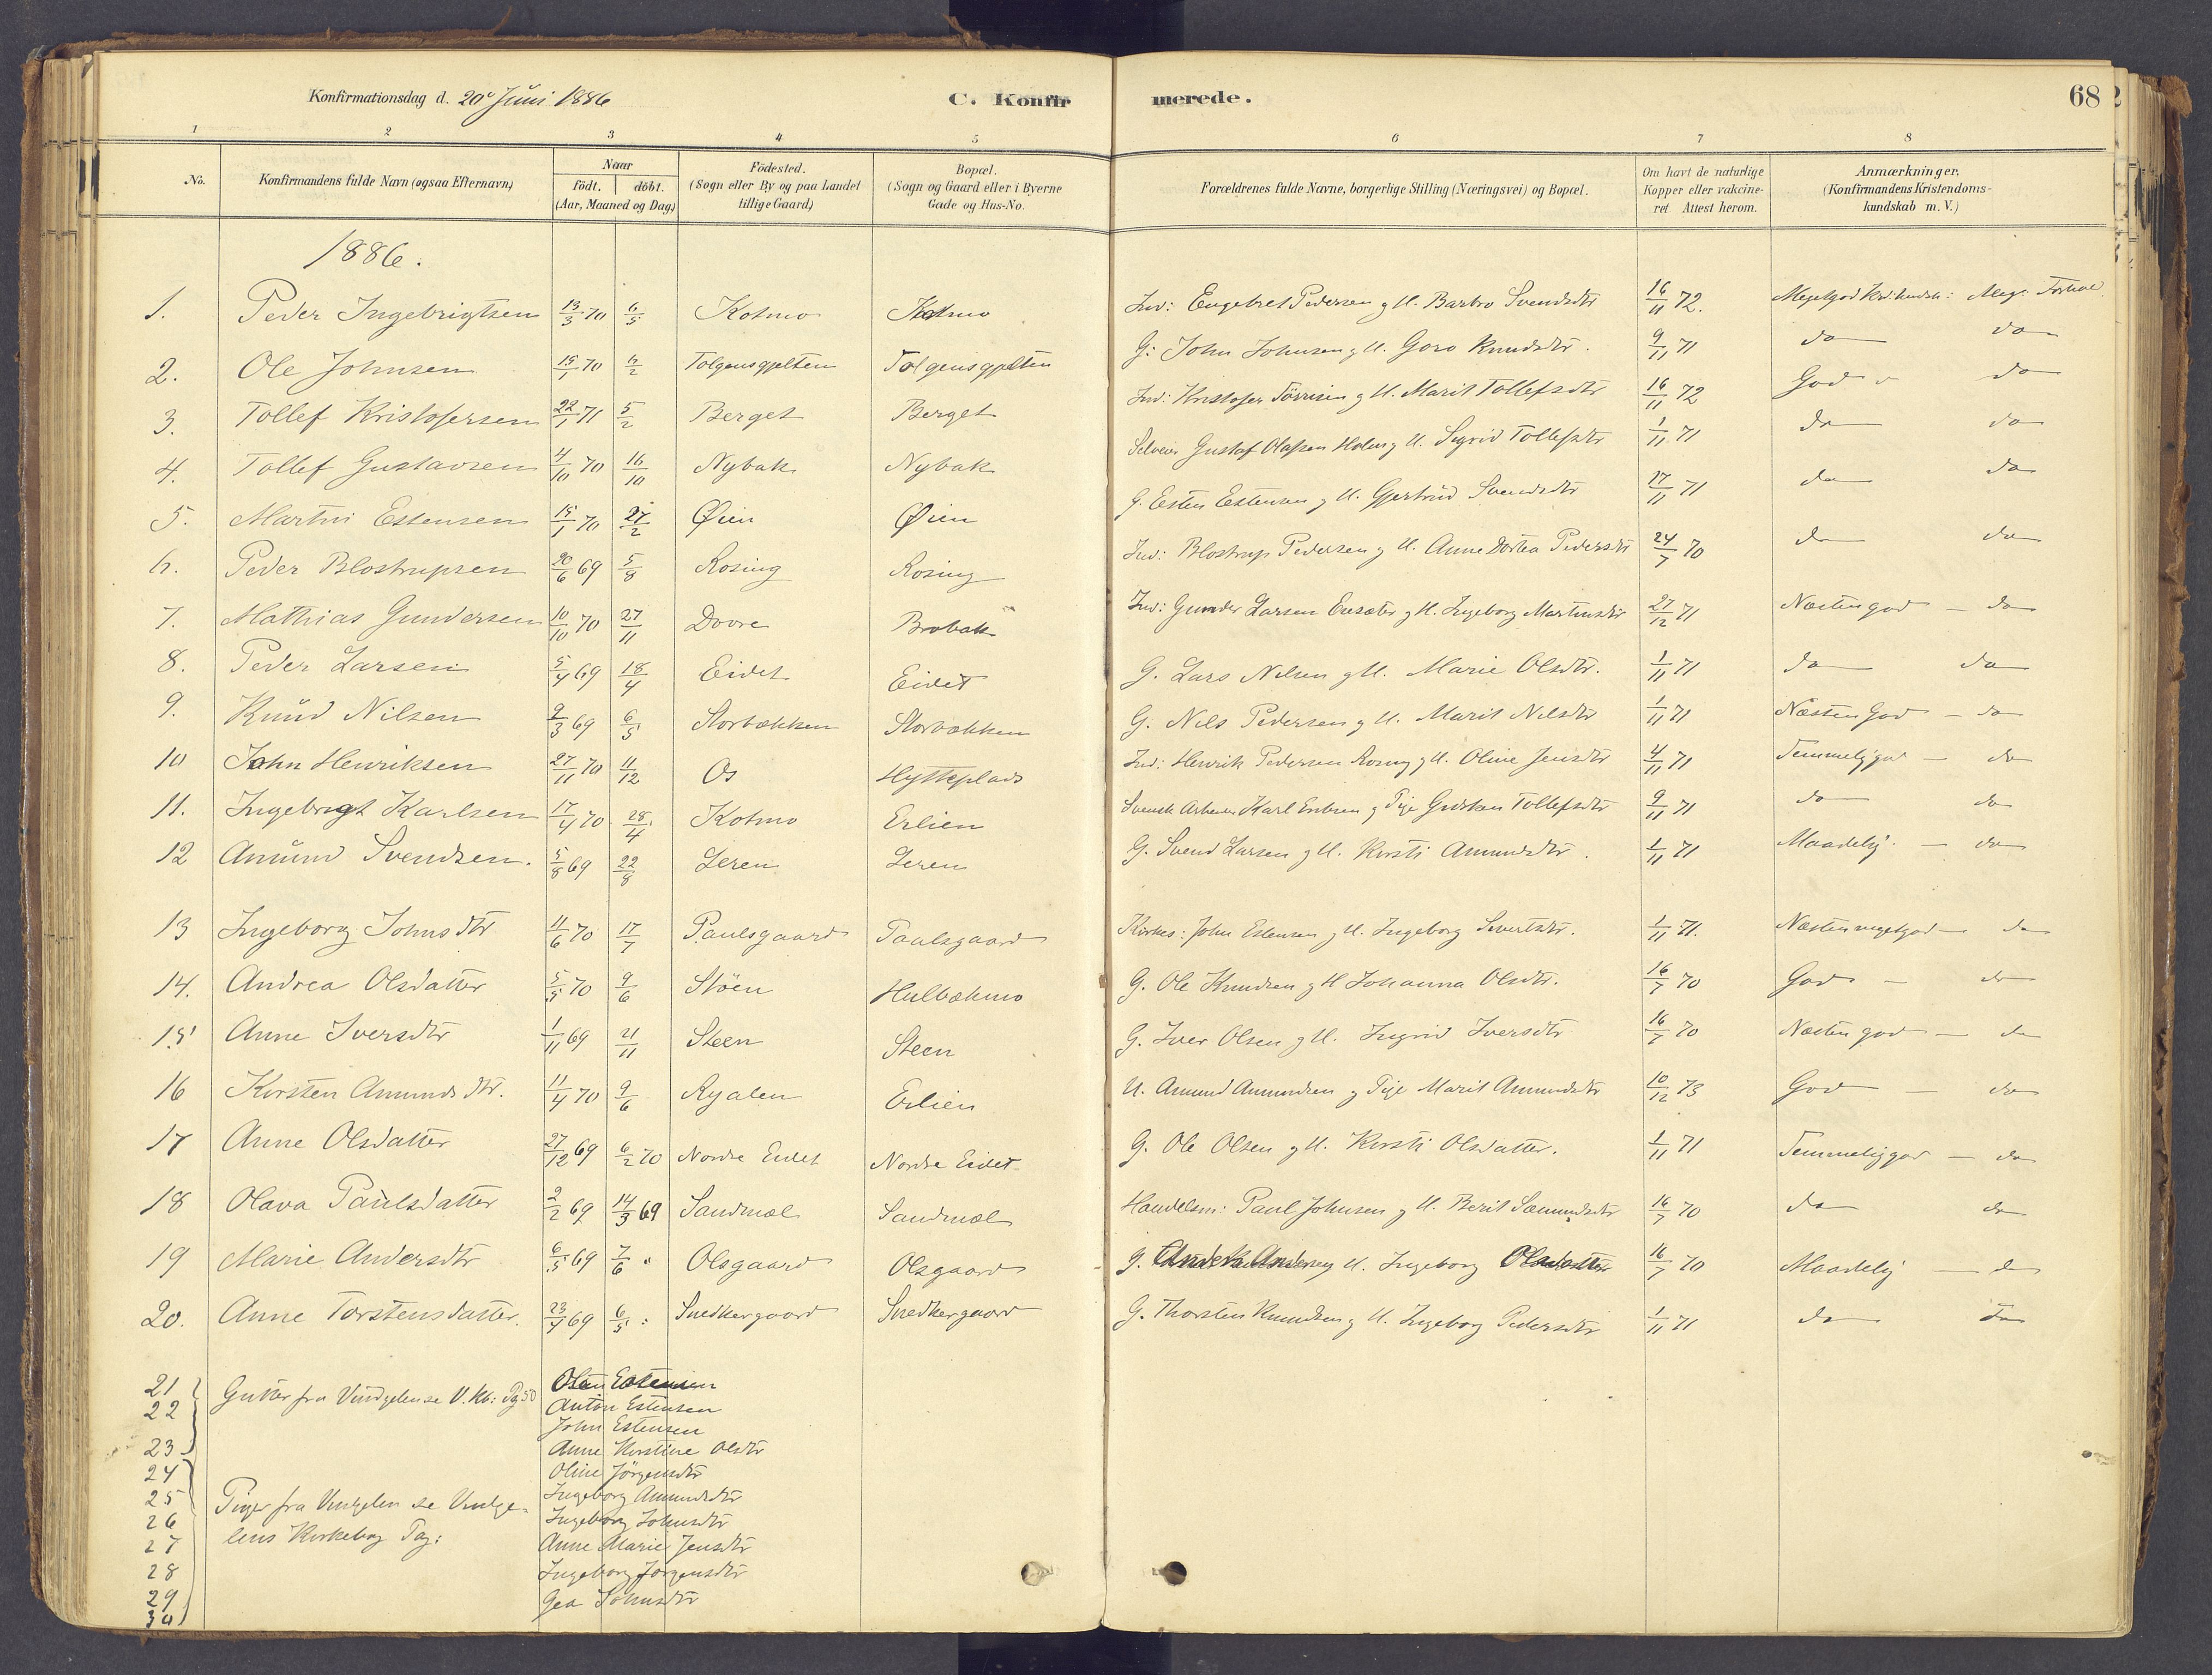 Konfirmationsdag d. 20de Juni 1886
C. Konfirmerede.
68
1 2 3 4 5 6 7 8
No. Konfirmandens fulde Navn (ogsaa Efternavn) Naar födt. döbt. (Aar, Maaned og Dag.) Födested. (Sogn eller By og paa Landet tillige Gaard) Bopæl. (Sogn og Gaard eller i Byerne Gade og Hus-No. Forældrenes fulde Navne, borgerlige Stilling (Næringsvei) og Bopæl. Om havt de naturlige Kopper eller vakcineret Attest herom. Anmærkninger. (Konfirmandens Kristendomskundskab m. V.)
1886.
1. Peder Ingebrigtsen 13/3 70 6/5 Kotmo Kotmo Ind: Engebret Pedersen g H. Barbro Svendsdtr 16/11 72. Megetgod
2. Ole Johnsen 15/1 70 6/2 Tolgensgjelten Tolgensgjelten G: John Johnsen g H. Goro Knudsdtr. 9/11 71 do do
3. Tollef Kristofersen 22/1 71 5/2 Berget Berget Ind: Kristofer g H. Marit Tollefsdtr 16/11 72 God do
4. Tollef Gustavsen 4/10 70 16/10 Nybak Nybak Selveier Gustaf Olafsen Holm g H. Sigrid Tollefsdtr 1/11 71 do do
5. Martin Estensen 15/1 70 27/2 Øien Øien G. Esten Estensen g H. Gjertrud Svendsdtr 17/11 71 do do
6. Peder Blostrupsen 20/6 69 5/8 Rosing Rosing Ind: Blostrup Pedersen g H. Anne Dortea Pedersdtr 24/7 70 do do
7. Mathias Gundersen 10/10 70 27/11 Dovre Brobak Ind: Gunder Larsen g H. Ingeborg Martinsdtr 27/12 71 Næstengod do
8. Peder Larsen 5/4 69 18/4 Eidet Eidet G. Lars Nilsen g H. Marie Olsdtr. 1/11 71 do do
9. Knud Nilsen 9/3 69 6/5 Storbækken Storbækken G. Nils Pedersen g H. Marit Nilsdtr 1/11 71 Næsten God – do
10 John Henriksen 27/11 70 11/12 Os Hytteplads Ind: Henrik Pedersen Rosing g H. Oline Jensdtr 4/11 71 Temmeliggod – do
11. Ingebrigt Karlsen 17/4 70 28/4 Kotmo Erlien Svensk Arbeider Karl g Pige Gudsken Tollefsdtr 9/11 71 do do
12 Amund Svendsen. 5/8 69 22/8 Leren Leren G. Svend Larsen g H. Kirsti Amundsdtr. 1/11 71 Maadelig. – do
13 Ingeborg Johnsdtr 11/6 70 17/7 Paulsgaard Paulsgaard Kirkes: John Estensen g H. Ingeborg Sivertsdtr. 1/11 71. Næsten megetgod do
14. Andrea Olsdatter 5/5 70 9/6 Stöen Hulbækmo G. Ole Knudsen g H Johanna Olsdtr. 16/7 70 God – do
15 Anne Iversdtr 1/11 69 21/11 Steen Steen G. Iver Olsen g H. Ingrid Iversdtr 16/7 70 Næsten god – do
16 Kirsten Amundsdtr. 11/4 70 9/6 Ryalen Erlien U. Amund Amundsen g Pige Marit Amundsdtr 10/12 73 God – do
17 Anne Olsdatter 27/12 69 6/2 70 Nordre Eidet Nordre Eidet G. Ole Olsen g H. Kirsti Olsdatter. 1/11 71 Temmeliggod – do
18 Olava Paulsdatter 2/2 69 14/3 69 Sandmæl Sandmæl Handelsm: Paul Johnsen g H. Berit Sæmundsdtr 16/7 70 do do
19 Marie Andersdtr 6/5 69 7/6 " Olsgaard Olsgaard G. Anders Andersen g H. Ingeborg Olsdatter 16/7 70 Maadelig – do
20. Anne Torstensdatter. 23/4 69 6/5 : Snedkergaard Snedkergaard G. Thorsten Knudsen g H. Ingeborg Pedersdtr 1/11 71 do do
21 Gutter fra Vindgelen se V. Kb: Pg 50 Olav Estensen
22 Anton Estensen
23 John Estensen
24 Anne Kirstine Olsdtr
25 Piger fra Vingelen se Vinge- Oline Jörgensdtr
26 lens Kirkebog Pag: Ingeborg Amundsdtr
27 Ingeborg Johnsdtr
28 Anne Marie Jensdtr
29 Ingeborg Jörgensdtr
30 Gea Johnsdtr